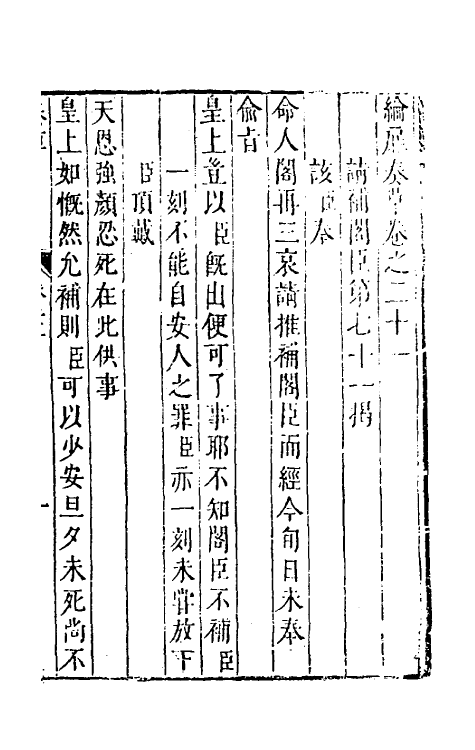 綸扉奏草卷之二十一
請補閣臣第七十一揭
該臣奉
命入閣再三哀請推補閣臣而經今旬日未奉
俞旨
皇上豈以臣既出便可了事耶不知閣臣不補臣
一刻不能自安人之罪臣亦一刻未嘗放下
臣頂戴
天恩強顏忍死在此供事
皇上如慨然允補則臣可以少安旦夕未死尚不